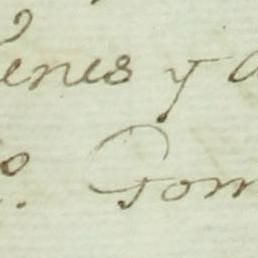 enes y
o. Gom